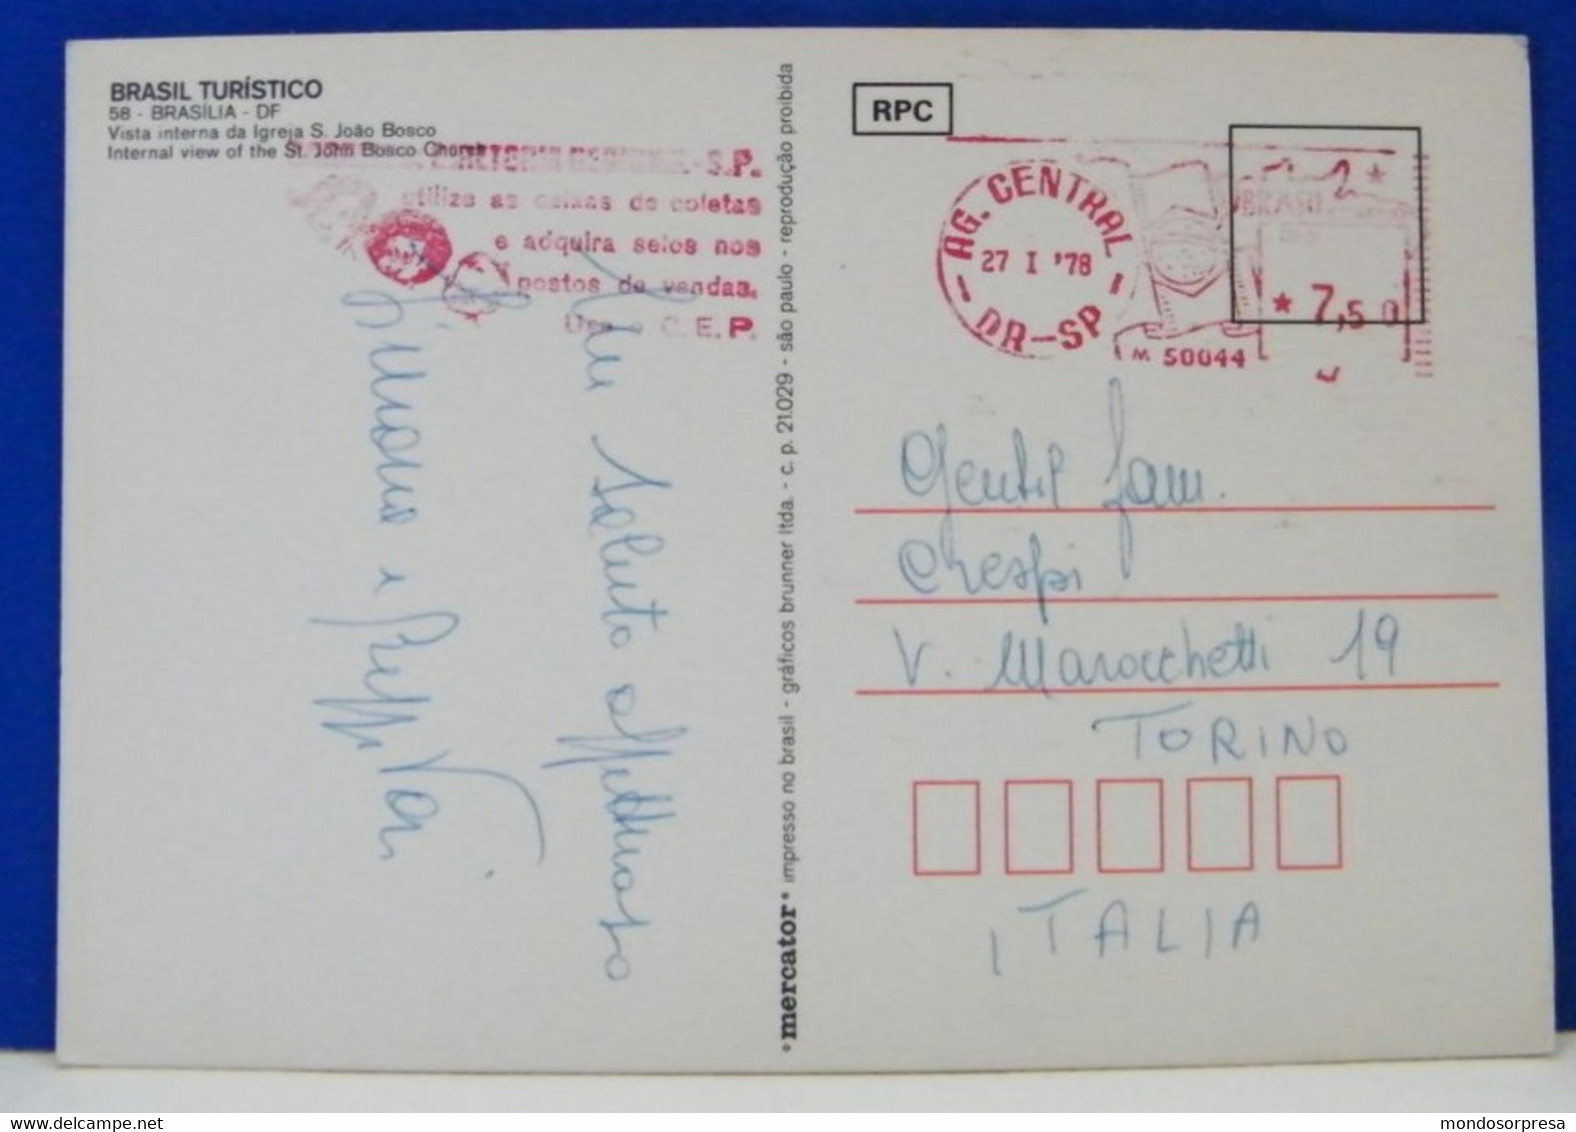 BRASIL TURÍSTICO
58 - BRASÍLIA - DF
Vista interna da Igreja S. João Bosco
Internal view of the St. John Bosco Church
DIRETORIA REGIONAL - S.P.
utilize as caixas de coletas
e adquira selos nos
postos de vendas.
Use o C.E.P.
Un saluto affettuoso
Silvana e
°mercator° impresso no brasil - gráficos brunner ltda. - c. p. 21.029 - são paulo - reprodução proibida
RPC
AG. CENTRAL
27 I '78
DR-SP
BRASIL
* 7,50
M 50044
Gentil fam.
Crespi
V. Marocchetti 19
TORINO
ITALIA
delcampe.net
mondosorpresa